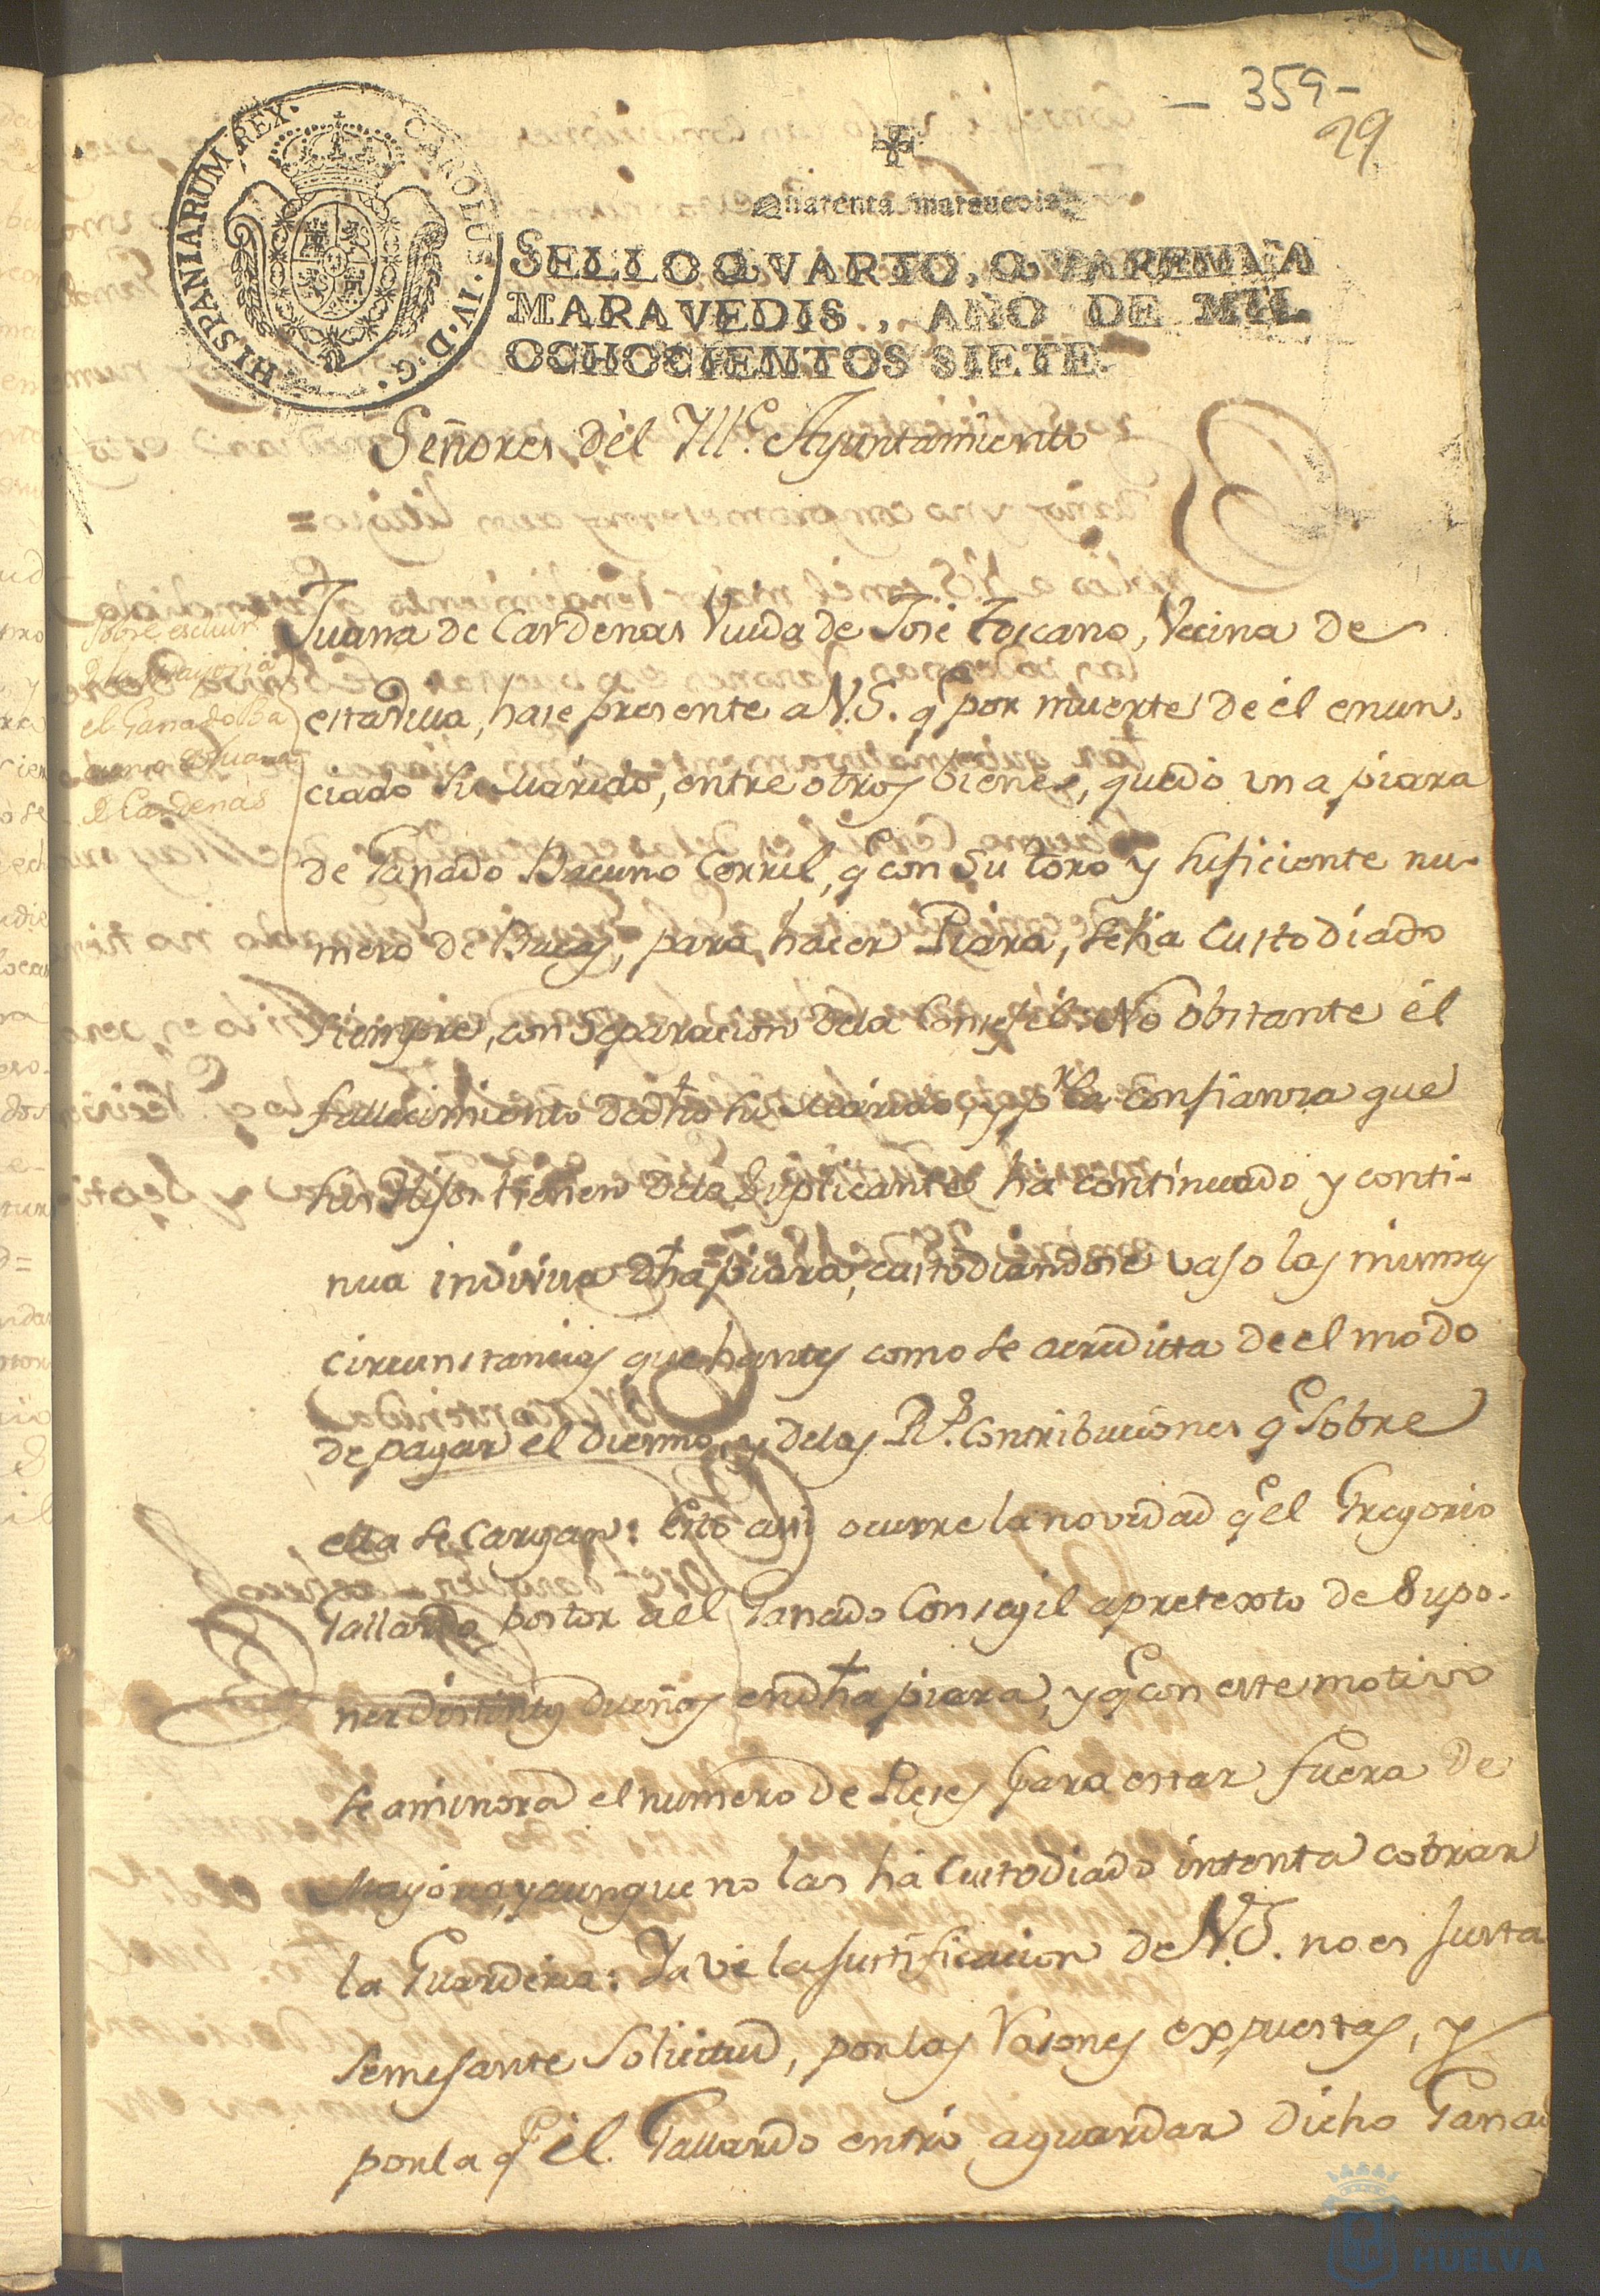 - 359 -
29
HISPANIARUM REX. CAROLUS. IV. D. G.
Quarenta maravedis
SELLO QVARTO, QVARENTA
MARAVEDIS, AÑO DE MIL
OCHOCIENTOS SIETE.
Señores del Ill.e Ayuntamiento
Sobre escluir
de la mayoria
el Ganado Ba
cuno de Juana
de Cardenas
Juana de Cardenas Viuda de José Toscano, Vecina de
esta Villa, hace presente a V.S. q.e por muerte de él enun-
ciado su Marido, entre otros bienes, quedó una piara
de Ganado Bacuno Cerril, q.e con su toro y suficiente nu-
mero de Bacas, para hacer Piara, se ha Custodiado
siempre, con separacion dela Consegil. No obstante el
fallecimiento de dho su Marido, y p.r la Confianza que
sus Hijos tienen dela Suplicante ha continuado y conti-
nua indivisa dha piara, custodiandose vaso las mismas
circunstancias que hantes como se acreditta de el modo
de pagar el diezmo, y delas R.s Contribuciones q.e sobre
ella se cargan: Esto asi ocurre la novedad q.e el Gregorio
Gallardo postor a el Ganado Consegil a pretexto de Supo-
ner distintos dueños en dha piara, y q.e con este motivo
se aminora el numero de Reses para estar fuera de
Mayoria, y aunque no las há Custodiado intenta cobrar
la Guarderia: Ya vé la Justificacion de V.S. no es Justa
semejante Solicitud, por las Rasones expuestas, y
por la q.e el Gallardo entró a guardar dicho Ganad
HUELVA